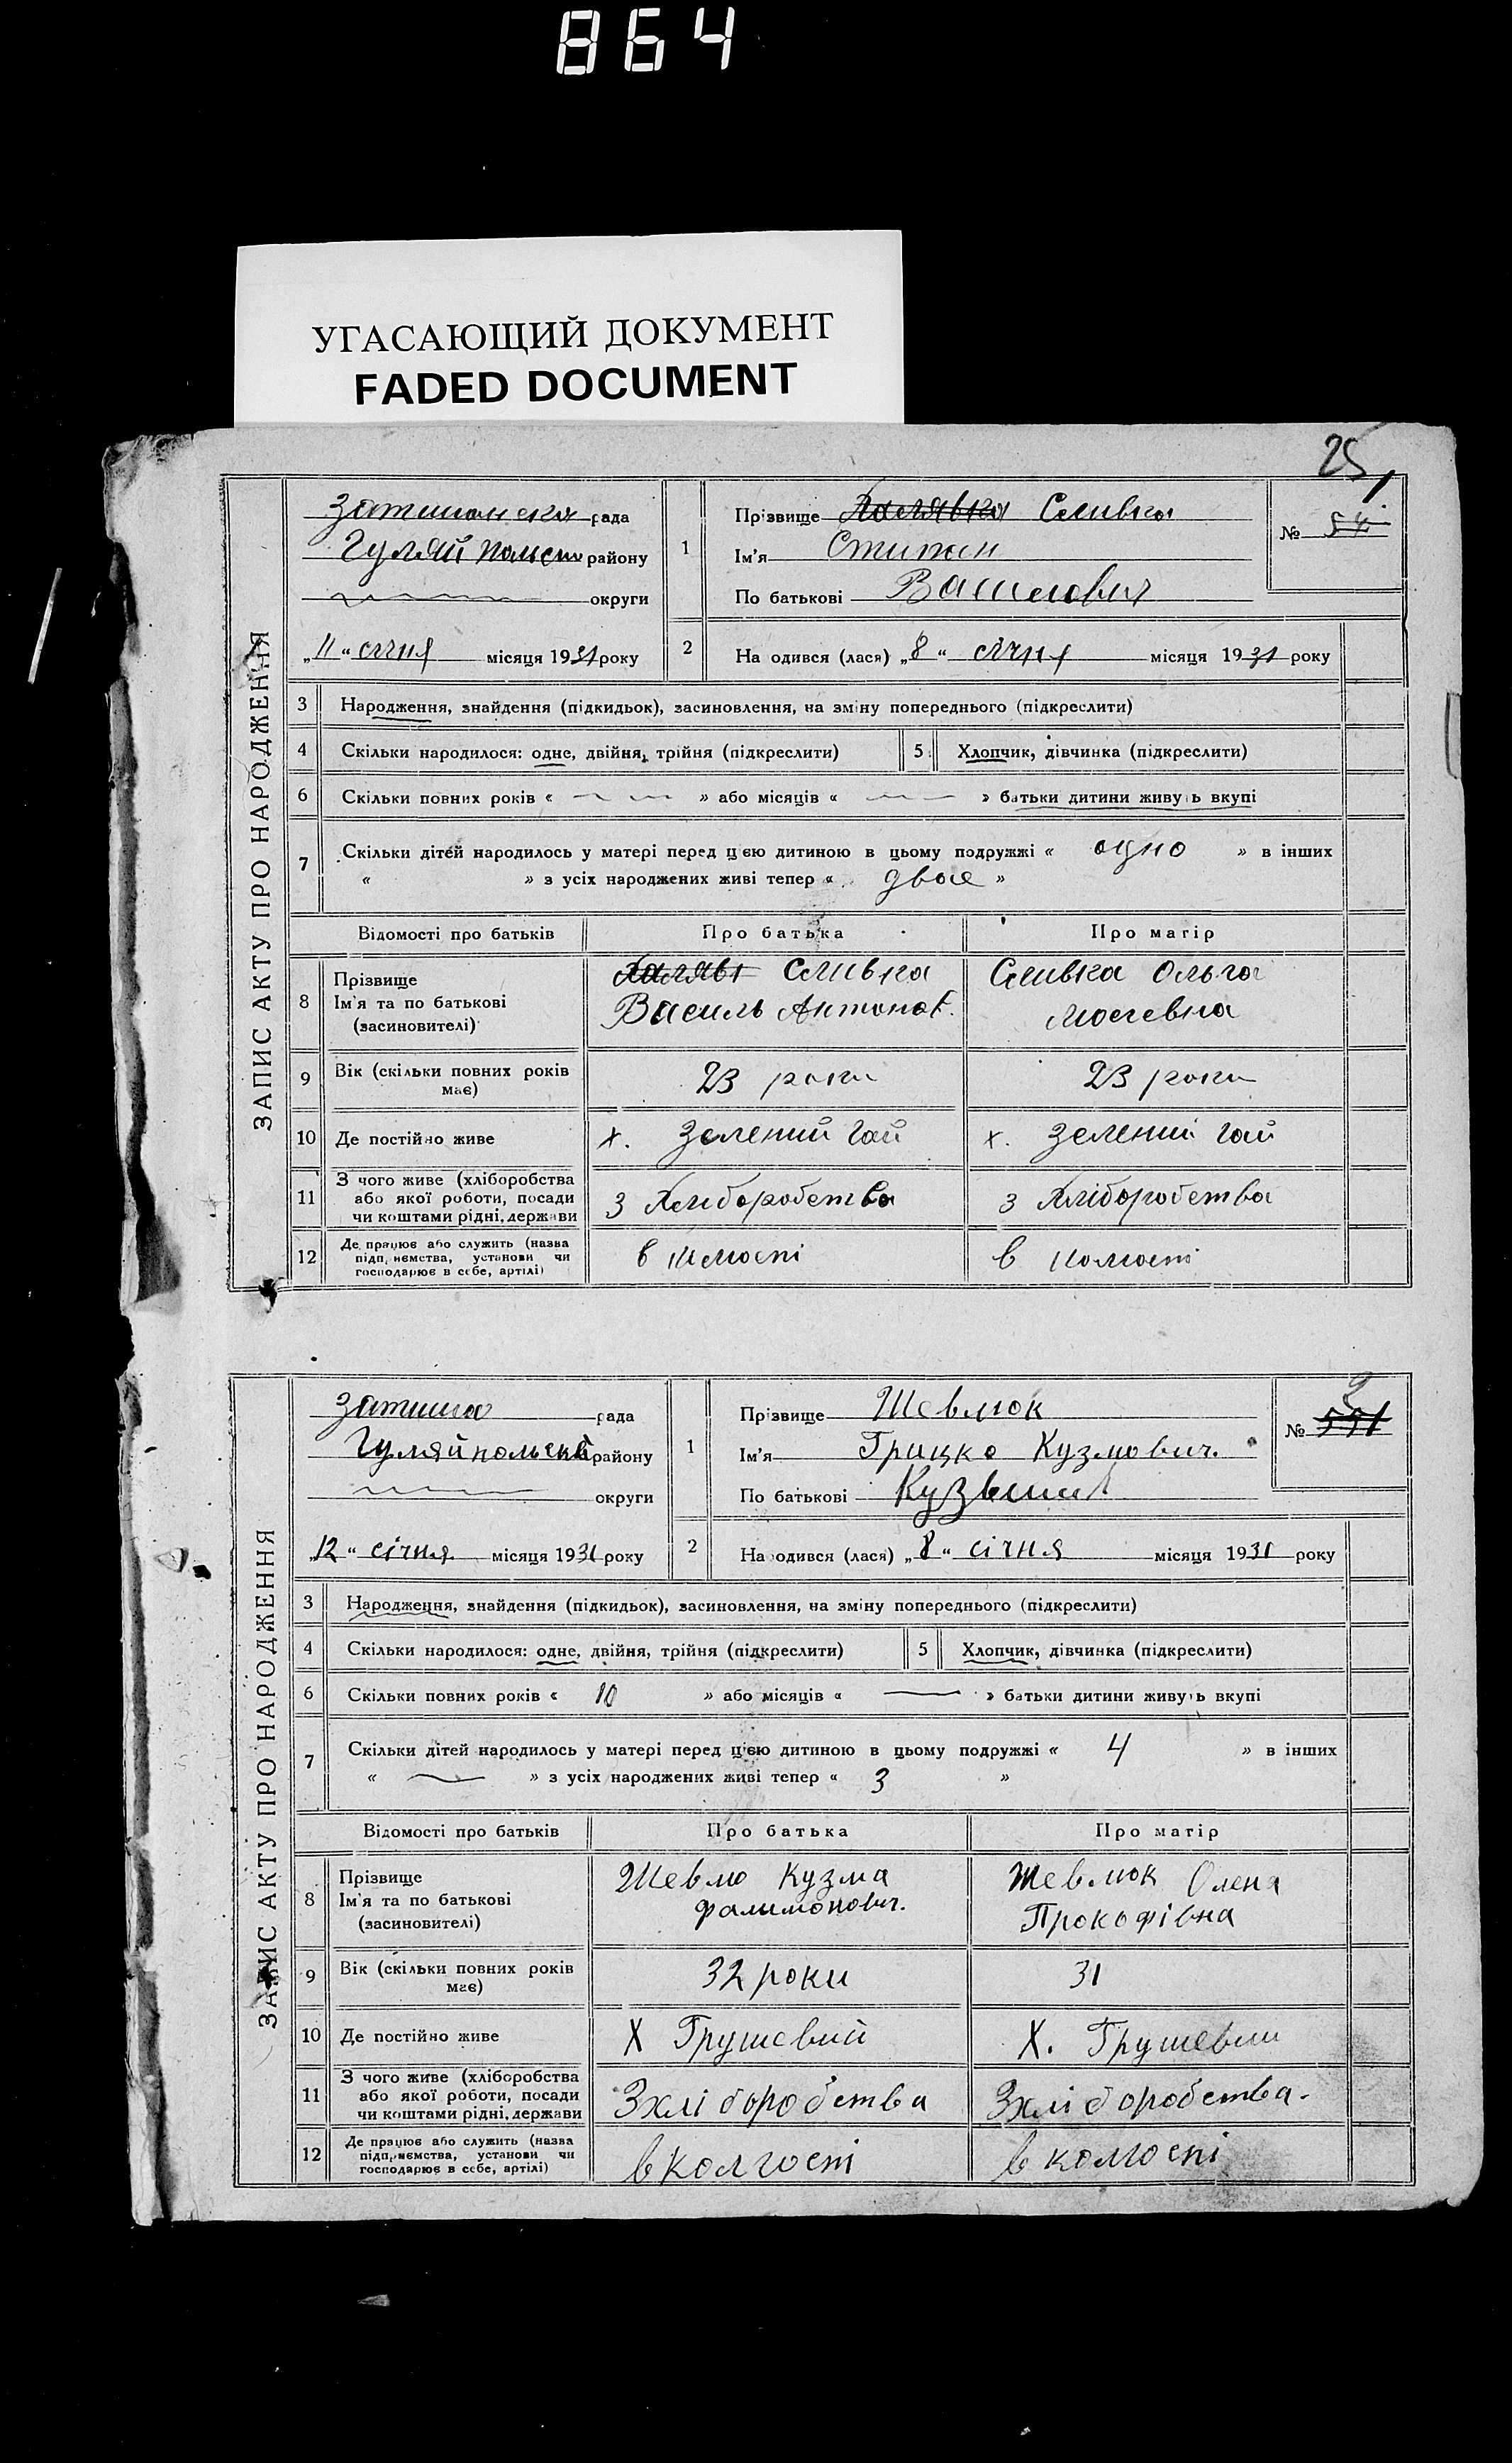 864
УГАСАЮЩИЙ ДОКУМЕНТ
FADED DOCUMENT
25
ЗАПИС АКТУ ПРО НАРОДЖЕННЯ
Затишанська рада
Гуляйпольськ району
округи
„11“ січня місяця 1931 року
1 Прізвище Халявка Сливка
Ім'я Стипан
По батькові Василович
№ 54 1
2 На одився (лася) „8“ січня місяця 1931 року
3 Народження, знайдення (підкидьок), засиновлення, на зміну попереднього (підкреслити)
4 Скільки народилося: одне, двійня, трійня (підкреслити) 5 Хлопчик, дівчинка (підкреслити)
6 Скільки повних років « » або місяців « » батьки дитини живуть вкупі
7 Скільки дітей народилось у матері перед цією дитиною в цьому подружжі « одно » в інших
« » з усіх народжених живі тепер « двое »
Відомості про батьків Про батька Про матір
8 Прізвище Ім'я та по батькові (засиновителі)
Халявк Сливка Василь Антонов.
Сливка Ольга Мосеевна
9 Вік (скільки повних років має) 23 роки 23 роки
10 Де постійно живе х. Зелений Гай х. Зелений Гай
11 З чого живе (хліборобства або якої роботи, посади чи коштами рідні, держави
З Хліборобства з Хліборобства
12 Де працює або служить (назва підприємства, установи чи господарює в себе, артілі)
в колгоспі в колгоспі
ЗАПИС АКТУ ПРО НАРОДЖЕННЯ
Затишна рада
Гуляйпольськ району
округи
„12“ січня місяця 1931 року
1 Прізвище Шевлюк
Ім'я Грицко Кузмович.
По батькові Кузьмич
№ 551 2
2 На одився (лася) „8“ січня місяця 1931 року
3 Народження, знайдення (підкидьок), засиновлення, на зміну попереднього (підкреслити)
4 Скільки народилося: одне, двійня, трійня (підкреслити) 5 Хлопчик, дівчинка (підкреслити)
6 Скільки повних років « 10 » або місяців « — » батьки дитини живуть вкупі
7 Скільки дітей народилось у матері перед цією дитиною в цьому подружжі « 4 » в інших
« — » з усіх народжених живі тепер « 3 »
Відомості про батьків Про батька Про матір
8 Прізвище Ім'я та по батькові (засиновителі)
Шевлю Кузма Фалимонович.
Шевлюк Олена Прокофівна
9 Вік (скільки повних років має) 32 роки 31
10 Де постійно живе Х Грушевий Х. Грушевий
11 З чого живе (хліборобства або якої роботи, посади чи коштами рідні, держави
З хліборобства З хліборобства.
12 Де працює або служить (назва підприємства, установи чи господарює в себе, артілі)
в колгоспі в колгоспі